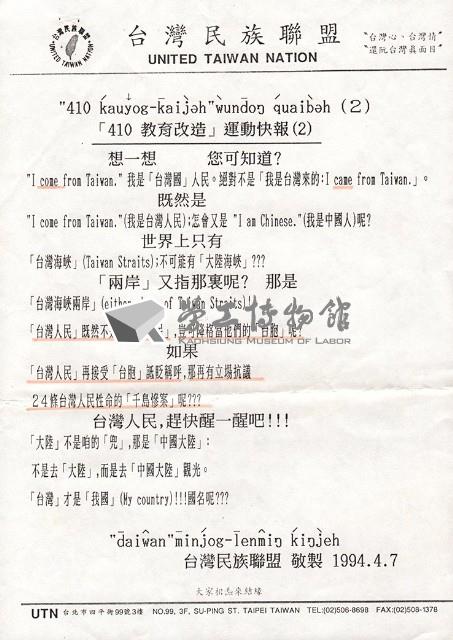 台灣民族聯盟
UNITED TAIWAN NATION
UNITED TAIWAN NATION
"台灣心、台灣情"
"還阮台灣真面目"
"410 kauyog-kaijəh"wundoŋ quaibəh (2)
「410 教育改造」運動快報(2)
想一想 您可知道?
"I come from Taiwan." 我是「台灣國」人民。絕對不是「我是台灣來的;I came from Taiwan.」。
既然是
"I come from Taiwan."(我是台灣人民);怎會又是 "I am Chinese."(我是中國人)呢?
世界上只有
「台灣海峽」(Taiwan Straits);不可能有「大陸海峽」???
「兩岸」又指那裏呢? 那是
「台灣海峽兩岸」(either of Taiwan Straits)!!
「台灣人民」既然不 豈可降格當他們的「台胞」呢?
勞工博物館
KAOHSIUNG MUSEUM OF LABOR
如果
「台灣人民」再接受「台胞」詆貶稱呼,那再有立場抗議
24條台灣人民性命的「千島慘案」呢???
台灣人民,趕快醒一醒吧!!!
「大陸」不是咱的「兜」,那是「中國大陸」:
不是去「大陸」,而是去「中國大陸」觀光。
「台灣」才是「我國」(My country)!!!國名呢???
"daiwan"minjog-lenmiŋ kiŋjeh
台灣民族聯盟 敬製 1994.4.7
大家相尋來結緣
UTN 台北市四平街99號3樓 NO.99, 3F, SU-PING ST. TAIPEI TAIWAN TEL:(02)506-8698 FAX:(02)508-1378